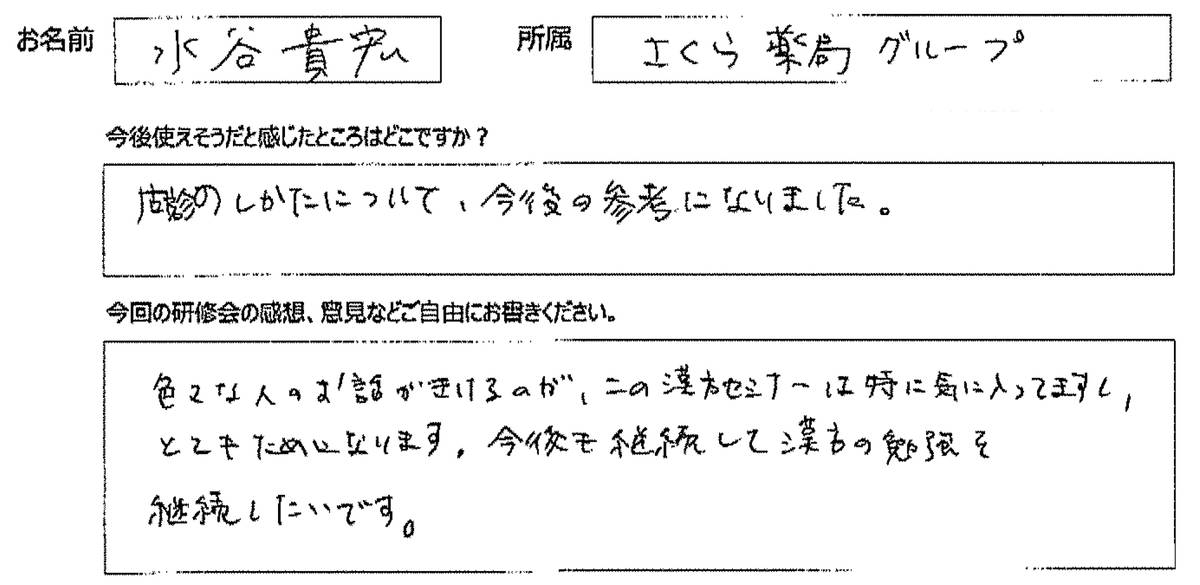 お名前 水谷貴宏 所属 さくら薬局グループ
今後使えそうだと感じたところはどこですか？
舌診のしかたについて、今後の参考になりました。
今回の研修会の感想、意見などご自由にお書きください。
色々な人のお話がきけるのが、この漢方セミナーは特に気に入ってますし、
とてもためになります。今後も継続して漢方の勉強を
継続したいです。